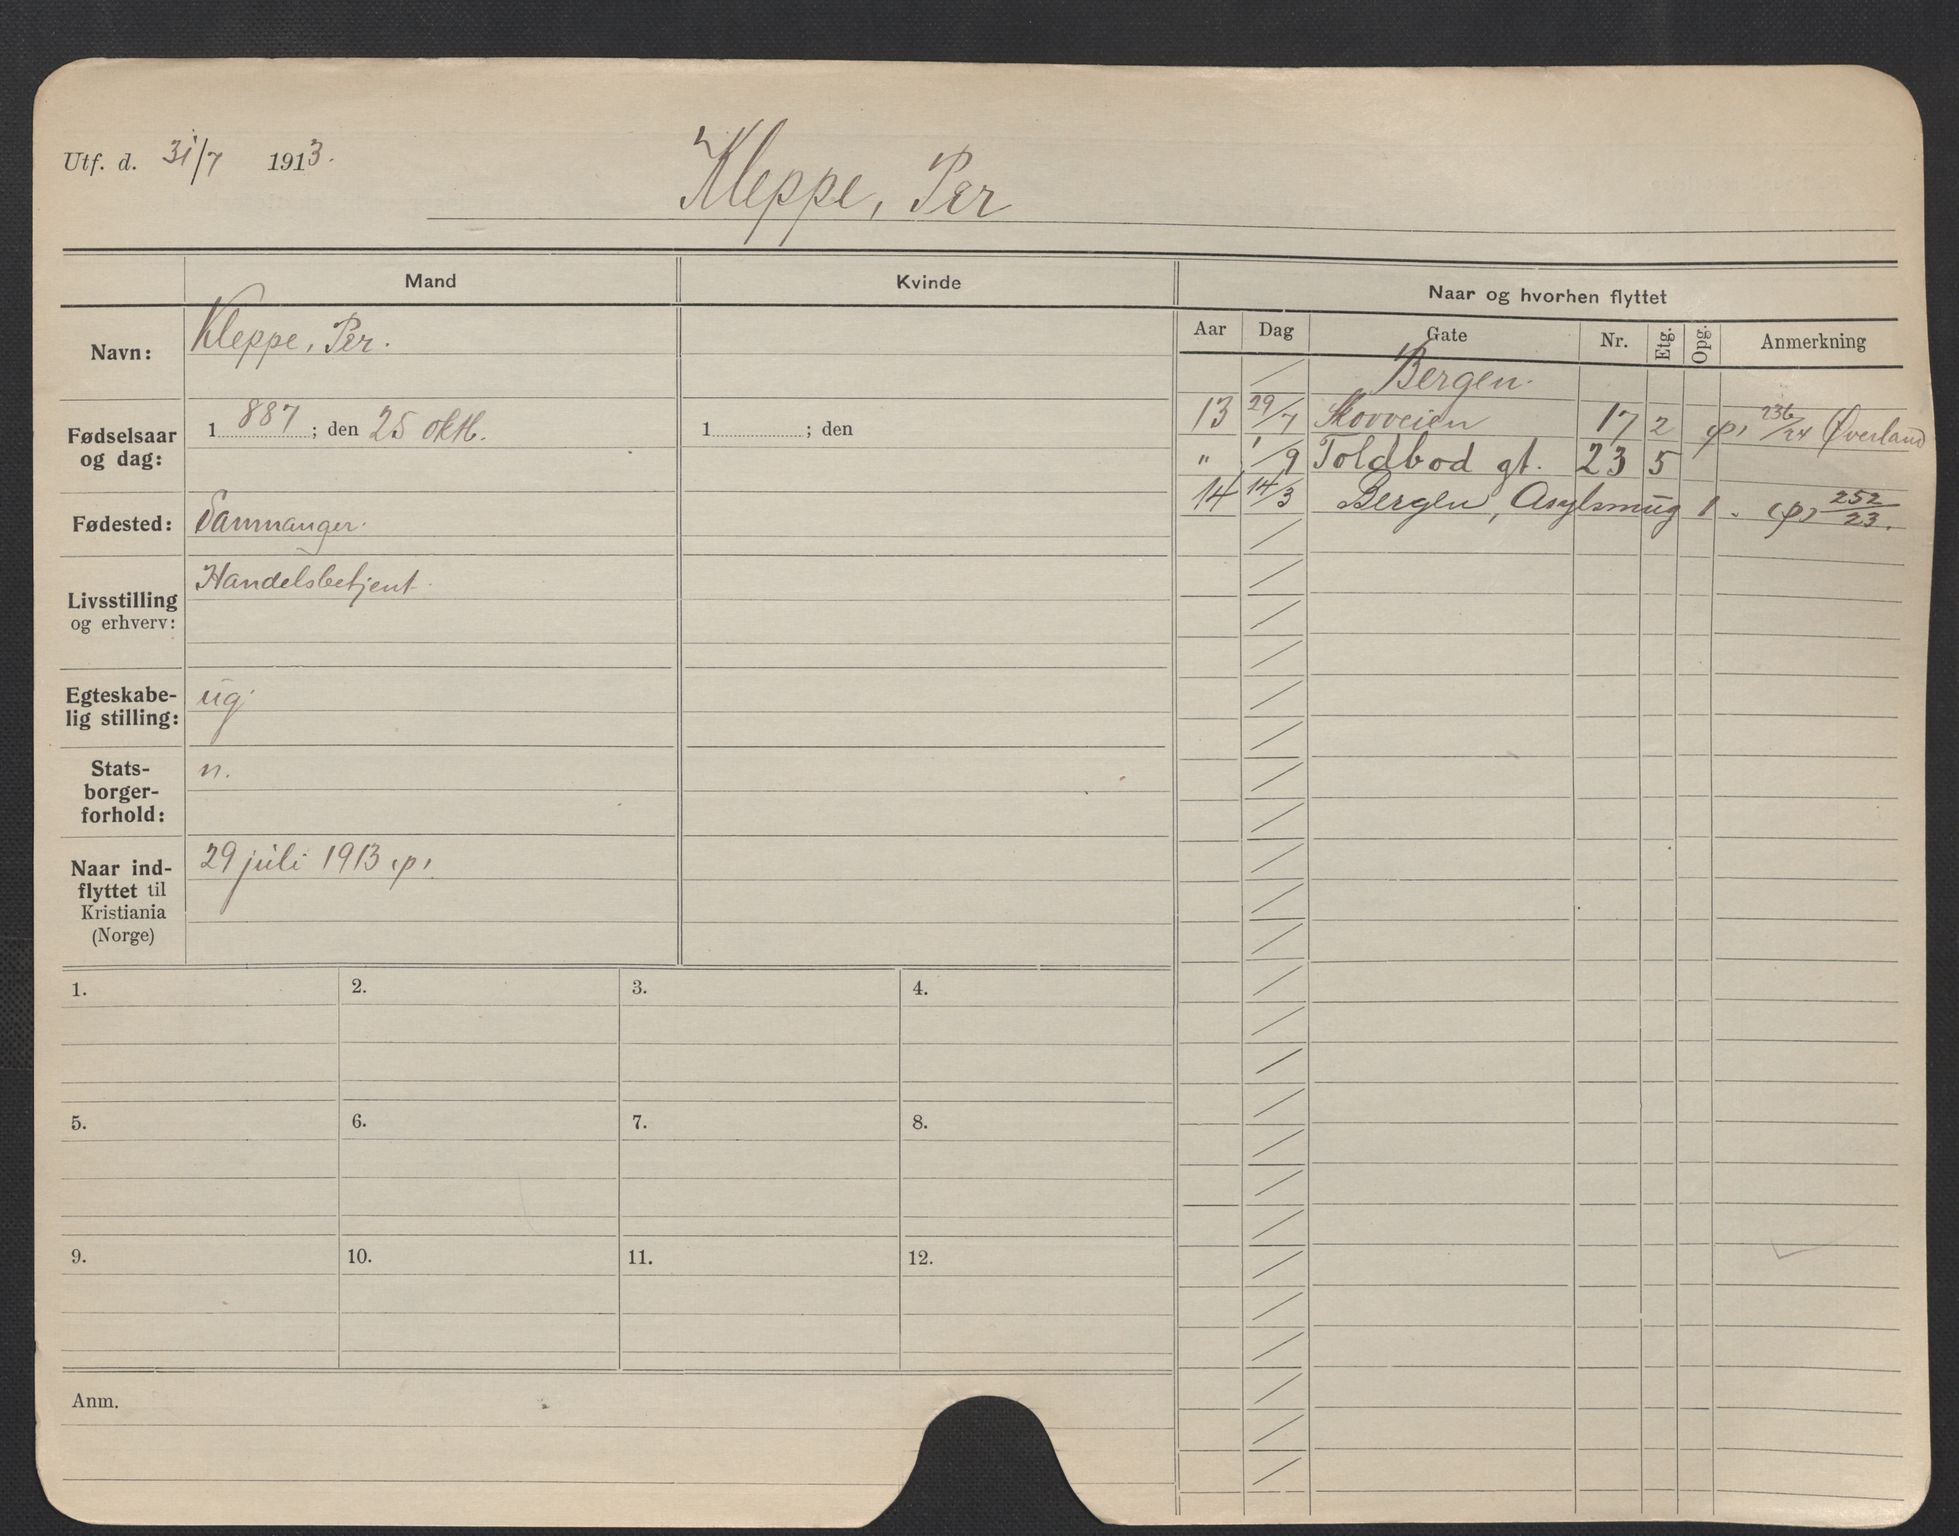 Utf. d. 31/7 1913.
Kleppe, Per
Mand
Kvinde
Naar og hvorhen flyttet
Aar Dag Gate Nr. Etg. Opg. Anmerkning
Navn: Kleppe, Per.
Bergen.
13 29/7 Skovveien 17 2 p, 236/24 Øverland
Fødselsaar og dag: 1887; den 25 oktb.
1 ; den
" 1/9 Toldbod gt. 23 5
14 14/3 Bergen, Asylsmug 1. (p) 252/23.
Fødested: Sammanger.
Livsstilling
og erhverv:
Handelsbetjent.
Egteskabe-
lig stilling:
ug.
Stats-
borger-
forhold:
n.
Naar ind-
flyttet til
Kristiania
(Norge)
29 juli 1913 (p)
1. 2. 3. 4.
5. 6. 7. 8.
9. 10. 11. 12.
Anm.